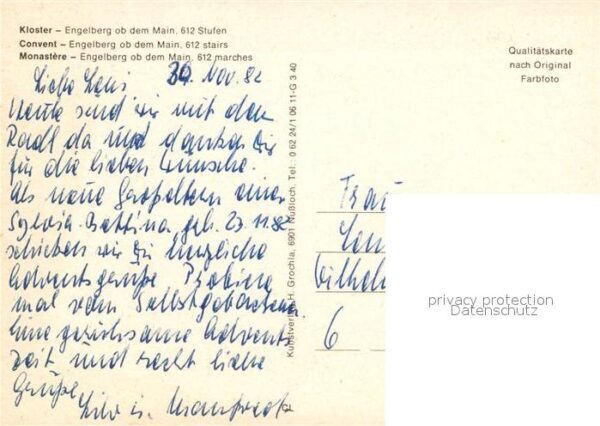 Kloster – Engelberg ob dem Main. 612 Stufen
Convent – Engelberg ob dem Main. 612 stairs
Monastère – Engelberg ob dem Main. 612 marches
Qualitätskarte
nach Original
Farbfoto
30. Nov. 82
Liebe Leni
Heute sind wir mit dem
Radl da und danken Dir
für die lieben Wünsche.
Als neue Großeltern einer
Sylvia-Bettina, geb. 23.11.82
schicken wir Dir herzliche
Adventsgrüße. Probiere
mal vom Selbstgebackenen.
Eine geruhsame Advents
zeit und recht liebe
Grüße
Manfred
Kunstverlag H. Grochla, 6901 Nußloch, Tel.: 0 62 24/1 06 11-G 3 40
Frau
Leni
Wilhelm
6
privacy protection
Datenschutz